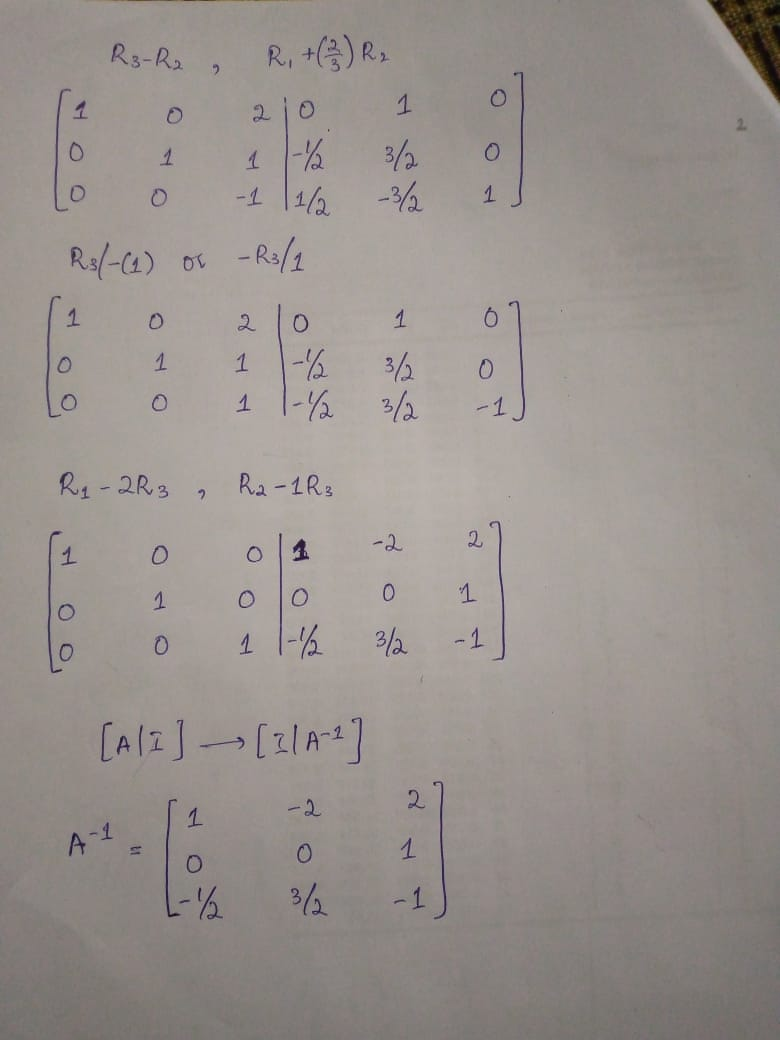 R3-R2 , R1 +(2/3) R2
2
1 0 2 | 0 1 0
0 1 1 | -1/2 3/2 0
0 0 -1 | 1/2 -3/2 1
R3/-(1) or -R3/1
1 0 2 | 0 1 0
0 1 1 | -1/2 3/2 0
0 0 1 | -1/2 3/2 -1
R1 - 2R3 , R2 - 1R3
1 0 0 | 1 -2 2
0 1 0 | 0 0 1
0 0 1 | -1/2 3/2 -1
[A|I] → [I|A-1]
A-1 =
1 -2 2
0 0 1
-1/2 3/2 -1